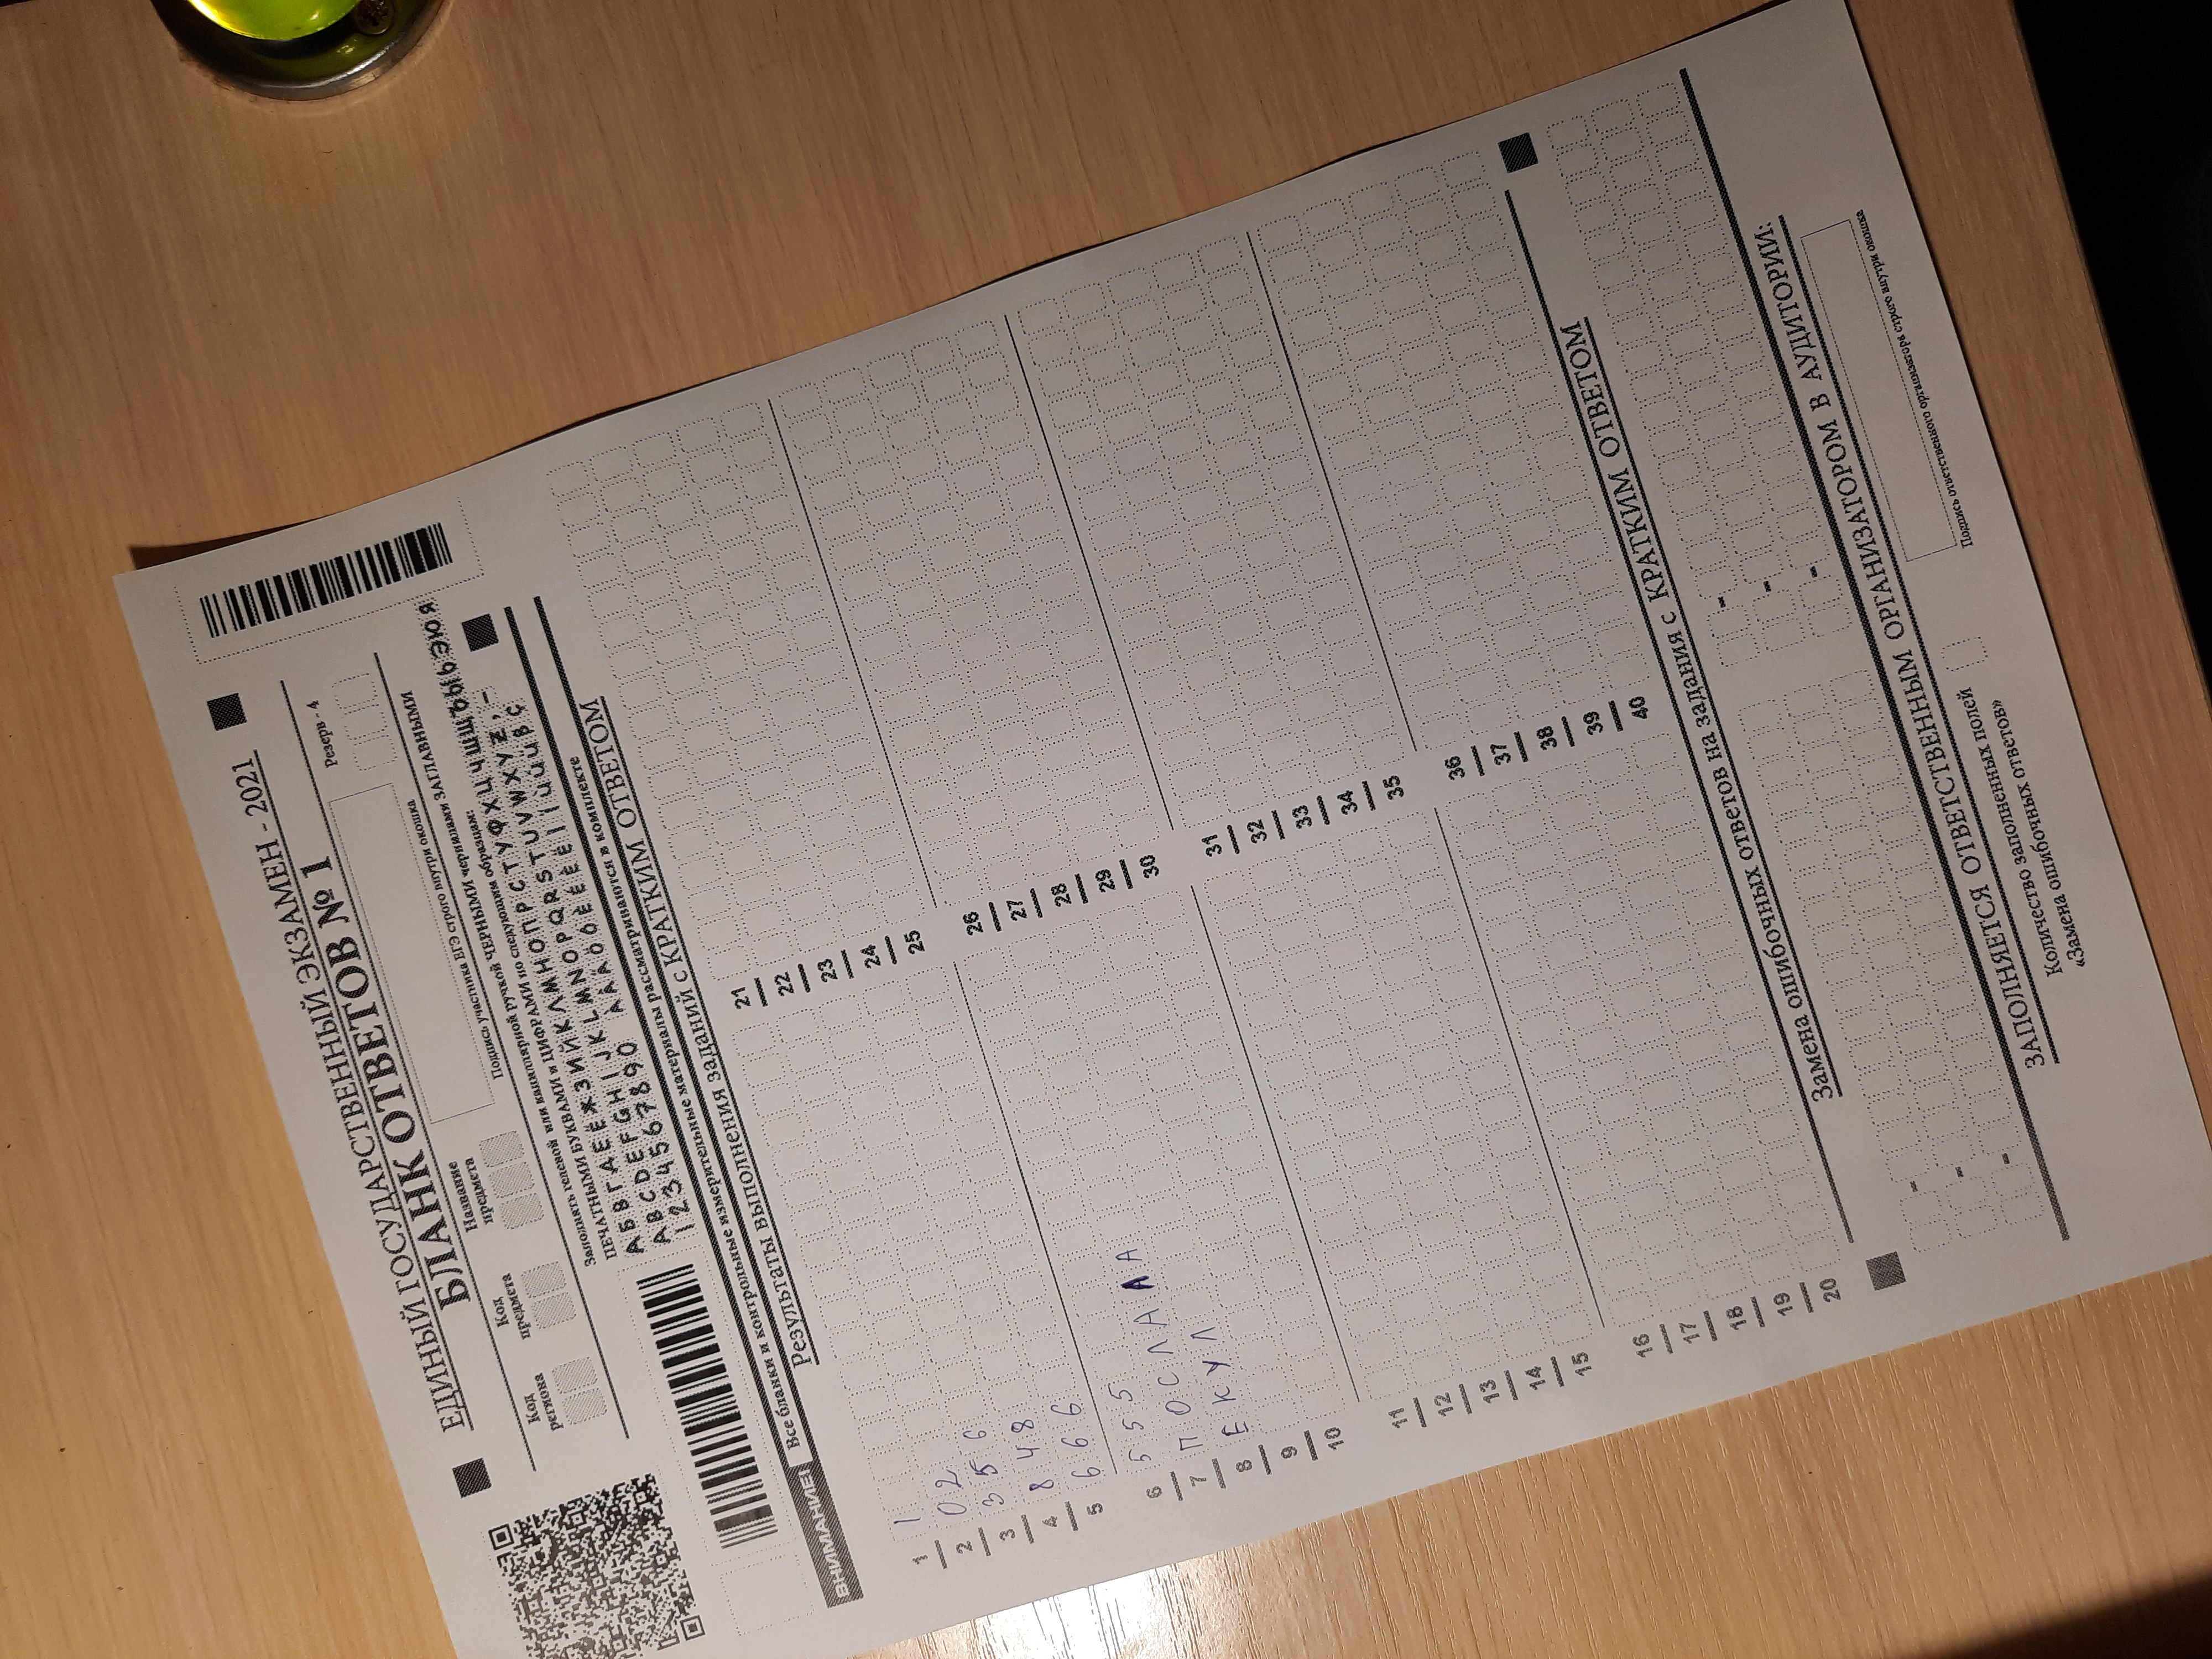 ЕДИНЫЙ ГОСУДАРСТВЕННЫЙ ЭКЗАМЕН - 2021
БЛАНК ОТВЕТОВ № 1
Код региона
Код предмета
Название предмета
Подпись участника ЕГЭ строго внутри окошка
Резерв - 4
Заполнять гелевой или капиллярной ручкой ЧЕРНЫМИ чернилами ЗАГЛАВНЫМИ
ПЕЧАТНЫМИ БУКВАМИ и ЦИФРАМИ по следующим образцам:
АБВГДЕЁЖЗИЙКЛМНОПРСТУФХЦЧШЩЪЫЬЭЮЯ
ABCDEFGHIJKLMNOPQRSTUVWXYZ,-
1234567890
ВНИМАНИЕ! Все бланки и контрольные измерительные материалы рассматриваются в комплекте
Результаты выполнения заданий с КРАТКИМ ОТВЕТОМ
1 1
2 02
3 356
4 848
5 666
6 555
7 ПОСЛАЛА
8 ЕКУЛ
9
10
11
12
13
14
15
16
17
18
19
20
21
22
23
24
25
26
27
28
29
30
31
32
33
34
35
36
37
38
39
40
Замена ошибочных ответов на задания с КРАТКИМ ОТВЕТОМ
- -
- -
- -
ЗАПОЛНЯЕТСЯ ОТВЕТСТВЕННЫМ ОРГАНИЗАТОРОМ В АУДИТОРИИ:
Количество заполненных полей
«Замена ошибочных ответов»
Подпись ответственного организатора строго внутри окошка